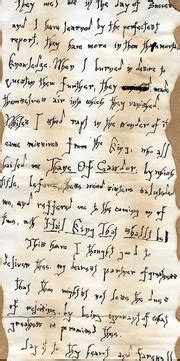 They met me in the Day of Success
and I have learned by the perfectest
report, they have more in them than mortal
knowledge. When I burned in desire to
question them further, they made
themselves air into which they vanished
Whiles I stood rapt in the wonder of it
came missives from the King, who all
hailed me Thane Of Cawdor, by which
title, before, these weird sisters saluted
me, and reffered me to the coming on of
time, with Hail King that shalt be
This have I thought good to
deliver thee, my dearest partner of greatness
that thou mights not lose the due
of rejoicing, by being ignorant of what
greatness is promised thee.
Lay it to thy heart and farewell